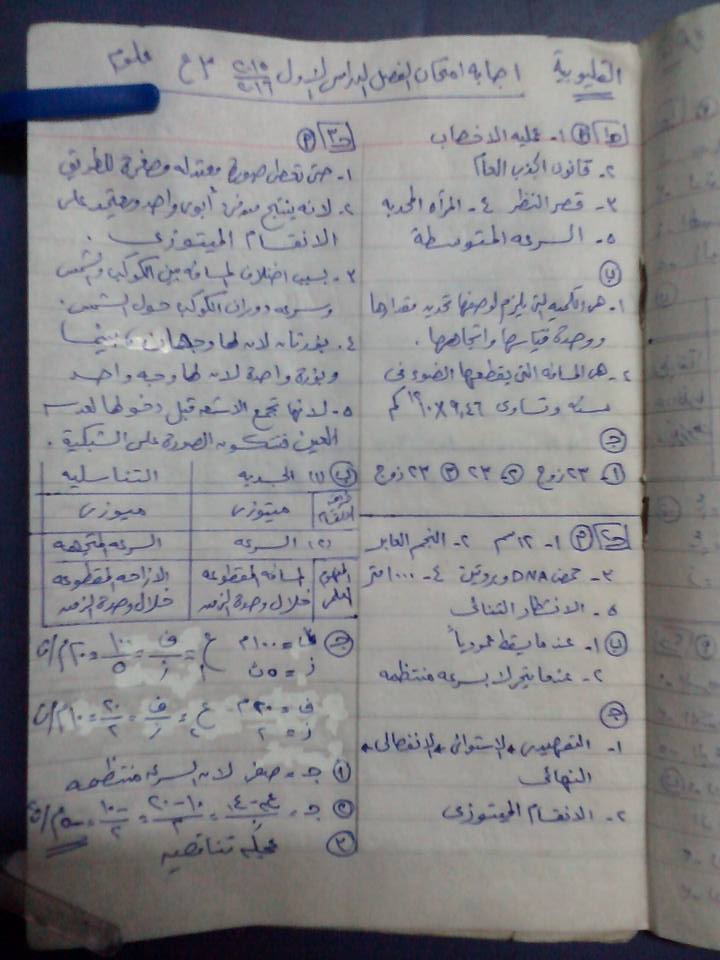 القليوبية اجابه امتحان الفصل الدراسى الاول ٢٠١٥/٢٠١٦ ٣ع علوم
ج١ أ ١- عمليه الاخصاب
٢- قانون الجذب العام
٣- قصر النظر ٤- المرأه المحدبه
٥- السرعه المتوسطة
ب
١- هى الكميه التى يلزم لوصفها تحديد مقدارها
ووحدة قياسها واتجاهها .
٢- هى المسافه التى يقطعها الضوء فى
سنه وتساوى ٩,٤٦ × ١٠١٢ كم
ج
١- ٢٣ زوج ٢- ٢٣ ٣ ٢٣ زوج
ج٢ أ ١- ١٢سم ٢- النجم العابر
٣- حمض DNA وبروتين ٤- ١٠٠٠متر
٥- الانشطار الثنائى
ب ١- عندما يسقط عمودياً
٢- عندما يتحرك بسرعه منتظمه
ج
١- التمهيدى , الإستوائى , الإنفصالى ,
النهائى
٢- الانقسام الميتوزى
ج٣ أ
١- حتى تعطى صورة معتدله ومصغرة للطريق
٢- لانه ينتج من فرد أبوى واحد ويعتمد على
الانقسام الميتوزى .
٣- بسبب اختلاف المسافه بين الكوكب والشمس
وسرعه دوران الكوكب حول الشمس .
٤- بؤرتان لان لها وجهان بينما
وبؤرة واحدة لان لها وجه واحد
٥- لانها تجمع الاشعه قبل دخولها لعدسه
العين فتتكون الصورة على الشبكية .
ب (١) الجسديه التناسليه
ميتوزى ميوزى
(٢) السرعه السرعه المتجهه
المفهوم العلمى المسافه المقطوعه خلال وحدة الزمن الازاحه المقطوعه خلال وحدة الزمن
ج ف = ١٠٠م ع١ = ف/ز = ١٠٠/٥ = ٢٠م/ث
ز = ٥ث
ف = ٢٠م ع٢ = ف/ز = ٢٠/٢ = ١٠م/ث
ز = ٢
١ جـ = صفر لان السرعه منتظمه
٢ جـ = ع٢-ع١/ز = ١٠-٢٠/٢ = -١٠/٢ = -٥م/ث٢
٣ عجله تناقصيه